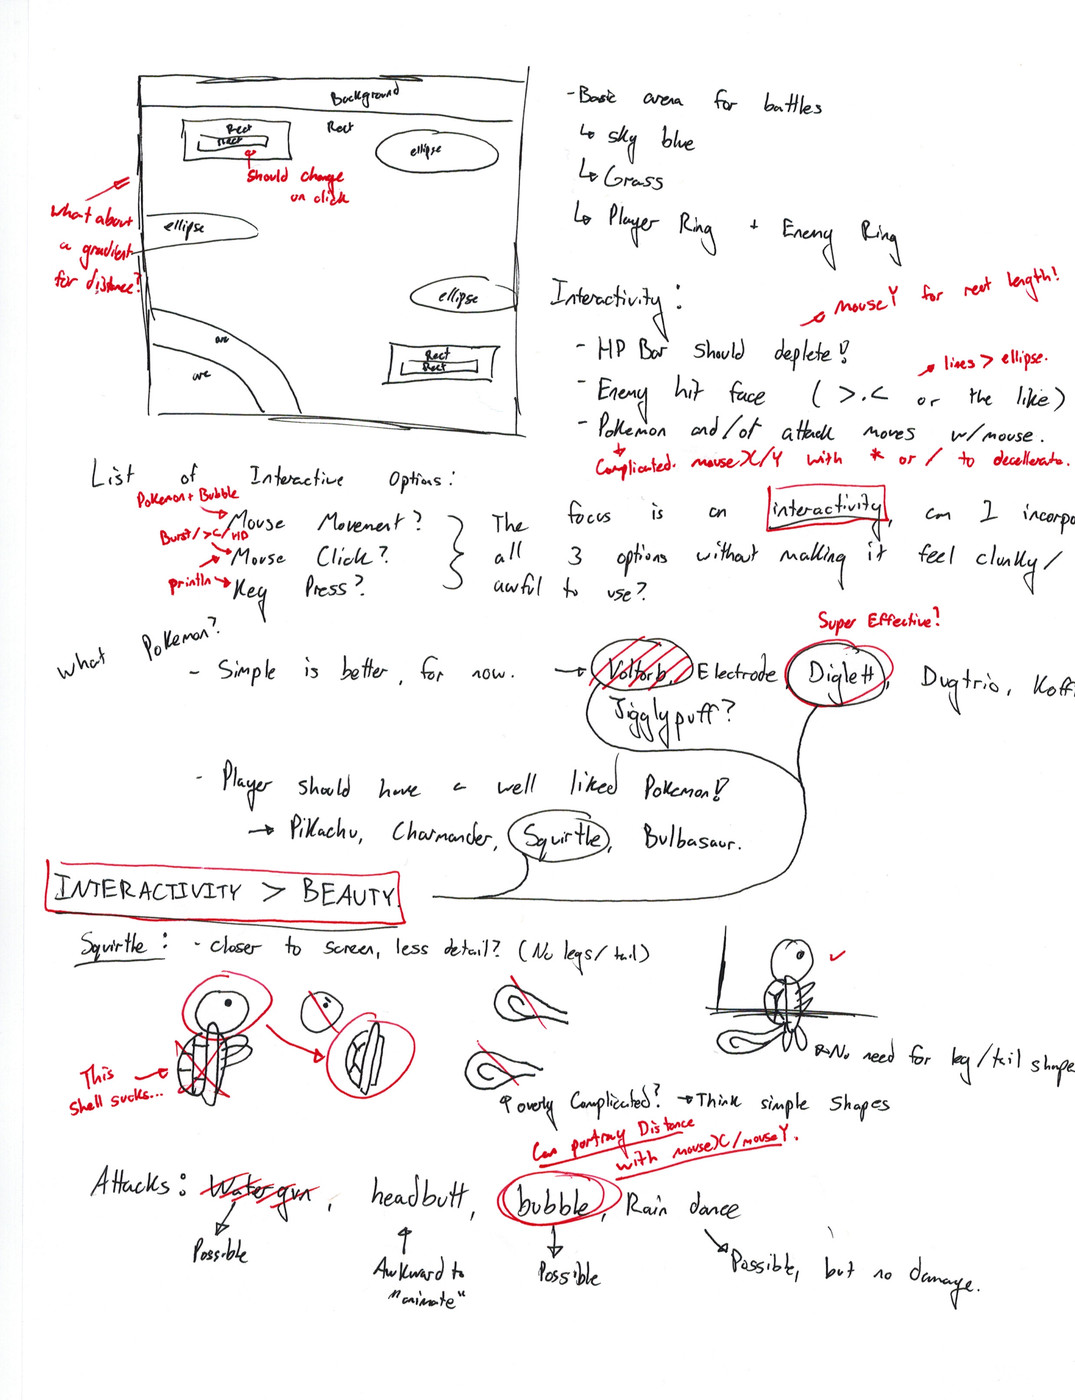 Background
Rect
Rect
Rect
ellipse
should change
on click
what about
a gradient
for distance?
ellipse
ellipse
arc
arc
Rect
Rect
-Basic arena for battles
↳ sky blue
↳ Grass
↳ Player Ring + Enemy Ring
Interactivity:
mouseY for rect length!
- HP Bar should deplete!
lines > ellipse.
- Enemy hit face ( >.< or the like)
- Pokemon and/or attack moves w/mouse.
Complicated. mouseX/Y with * or / to decellerate.
List of Interactive Options:
Pokemon + Bubble
Mouse Movement?
Burst/ >< / HP
Mouse Click?
println
Key Press?
The focus is on interactivity, can I incorpo
all 3 options without making it feel clunky/
awful to use?
What Pokemon?
Super Effective?
- Simple is better, for now. → Voltorb, Electrode, Diglett, Dugtrio, Koff
Jigglypuff?
- Player should have a well liked Pokemon!
→ Pikachu, Charmander, Squirtle, Bulbasaur.
INTERACTIVITY > BEAUTY.
Squirtle: - closer to screen, less detail? (No legs/tail)
This
shell sucks...
No need for leg/tail shape
overly Complicated? → Think simple shapes
Can portray Distance
with mouseX/mouseY.
Attacks: Water gun, headbutt, bubble, Rain dance
Possible
Awkward to
"animate"
Possible
Possible, but no damage.